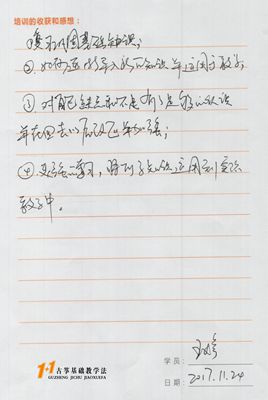 培训的收获和感想:
①复习巩固基础知识;
②如何运时导入知识并运用于教学;
③对自己缺点和不足有了足够的认识
并在回去以后改正和加强;
④更加学习,将所学知识运用到实际
教学中。
1+1古筝基础教学法
GUZHENG JICHU JIAOXUEFA
学员:
日期: 2017.11.24